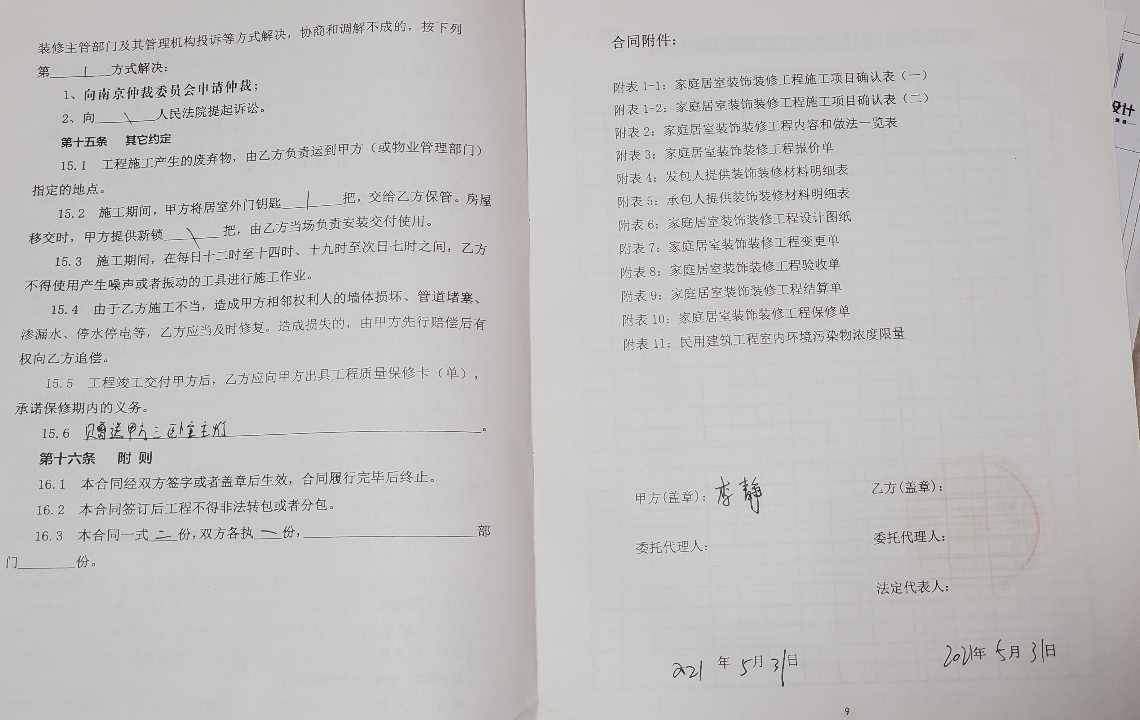 装修主管部门及其管理机构投诉等方式解决，协商和调解不成的，按下列
第 1 方式解决：
1、向南京仲裁委员会申请仲裁；
2、向 \ 人民法院提起诉讼。
第十五条 其它约定
15.1 工程施工产生的废弃物，由乙方负责运到甲方（或物业管理部门）
指定的地点。
15.2 施工期间，甲方将居室外门钥匙 1 把，交给乙方保管。房屋
移交时，甲方提供新锁 \ 把，由乙方当场负责安装交付使用。
15.3 施工期间，在每日十二时至十四时、十九时至次日七时之间，乙方
不得使用产生噪声或者振动的工具进行施工作业。
15.4 由于乙方施工不当，造成甲方相邻权利人的墙体损坏、管道堵塞、
渗漏水、停水停电等，乙方应当及时修复。造成损失的，由甲方先行赔偿后有
权向乙方追偿。
15.5 工程竣工交付甲方后，乙方应向甲方出具工程质量保修卡（单），
承诺保修期内的义务。
15.6 赠送甲方三卧室主灯。
第十六条 附则
16.1 本合同经双方签字或者盖章后生效，合同履行完毕后终止。
16.2 本合同签订后工程不得非法转包或者分包。
16.3 本合同一式 二 份，双方各执 一 份，________部
门________份。
合同附件：
附表 1-1：家庭居室装饰装修工程施工项目确认表（一）
附表 1-2：家庭居室装饰装修工程施工项目确认表（二）
附表 2：家庭居室装饰装修工程内容和做法一览表
附表 3：家庭居室装饰装修工程报价单
附表 4：发包人提供装饰装修材料明细表
附表 5：承包人提供装饰装修材料明细表
附表 6：家庭居室装饰装修工程设计图纸
附表 7：家庭居室装饰装修工程变更单
附表 8：家庭居室装饰装修工程验收单
附表 9：家庭居室装饰装修工程结算单
附表 10：家庭居室装饰装修工程保修单
附表 11：民用建筑工程室内环境污染物浓度限量
甲方(盖章)：李静 乙方(盖章)：
委托代理人： 委托代理人：
法定代表人：
2021 年 5月 31日 2021年 5月 31日
9
设计